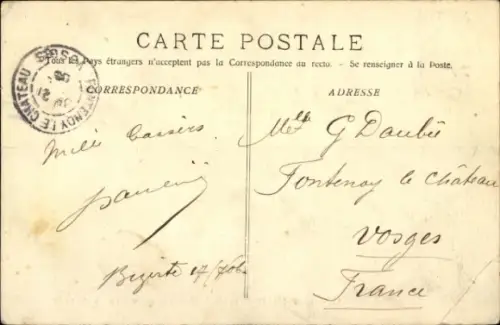 CARTE POSTALE
Tous les Pays étrangers n'acceptent pas la Correspondance au recto. - Se renseigner à la Poste.
FONTENOY LE CHATEAU VOSGES
21
CORRESPONDANCE
Mille baisers
Bizerte 17/7 06
ADRESSE
Melle G Daubié
Fontenoy le Château
Vosges
France